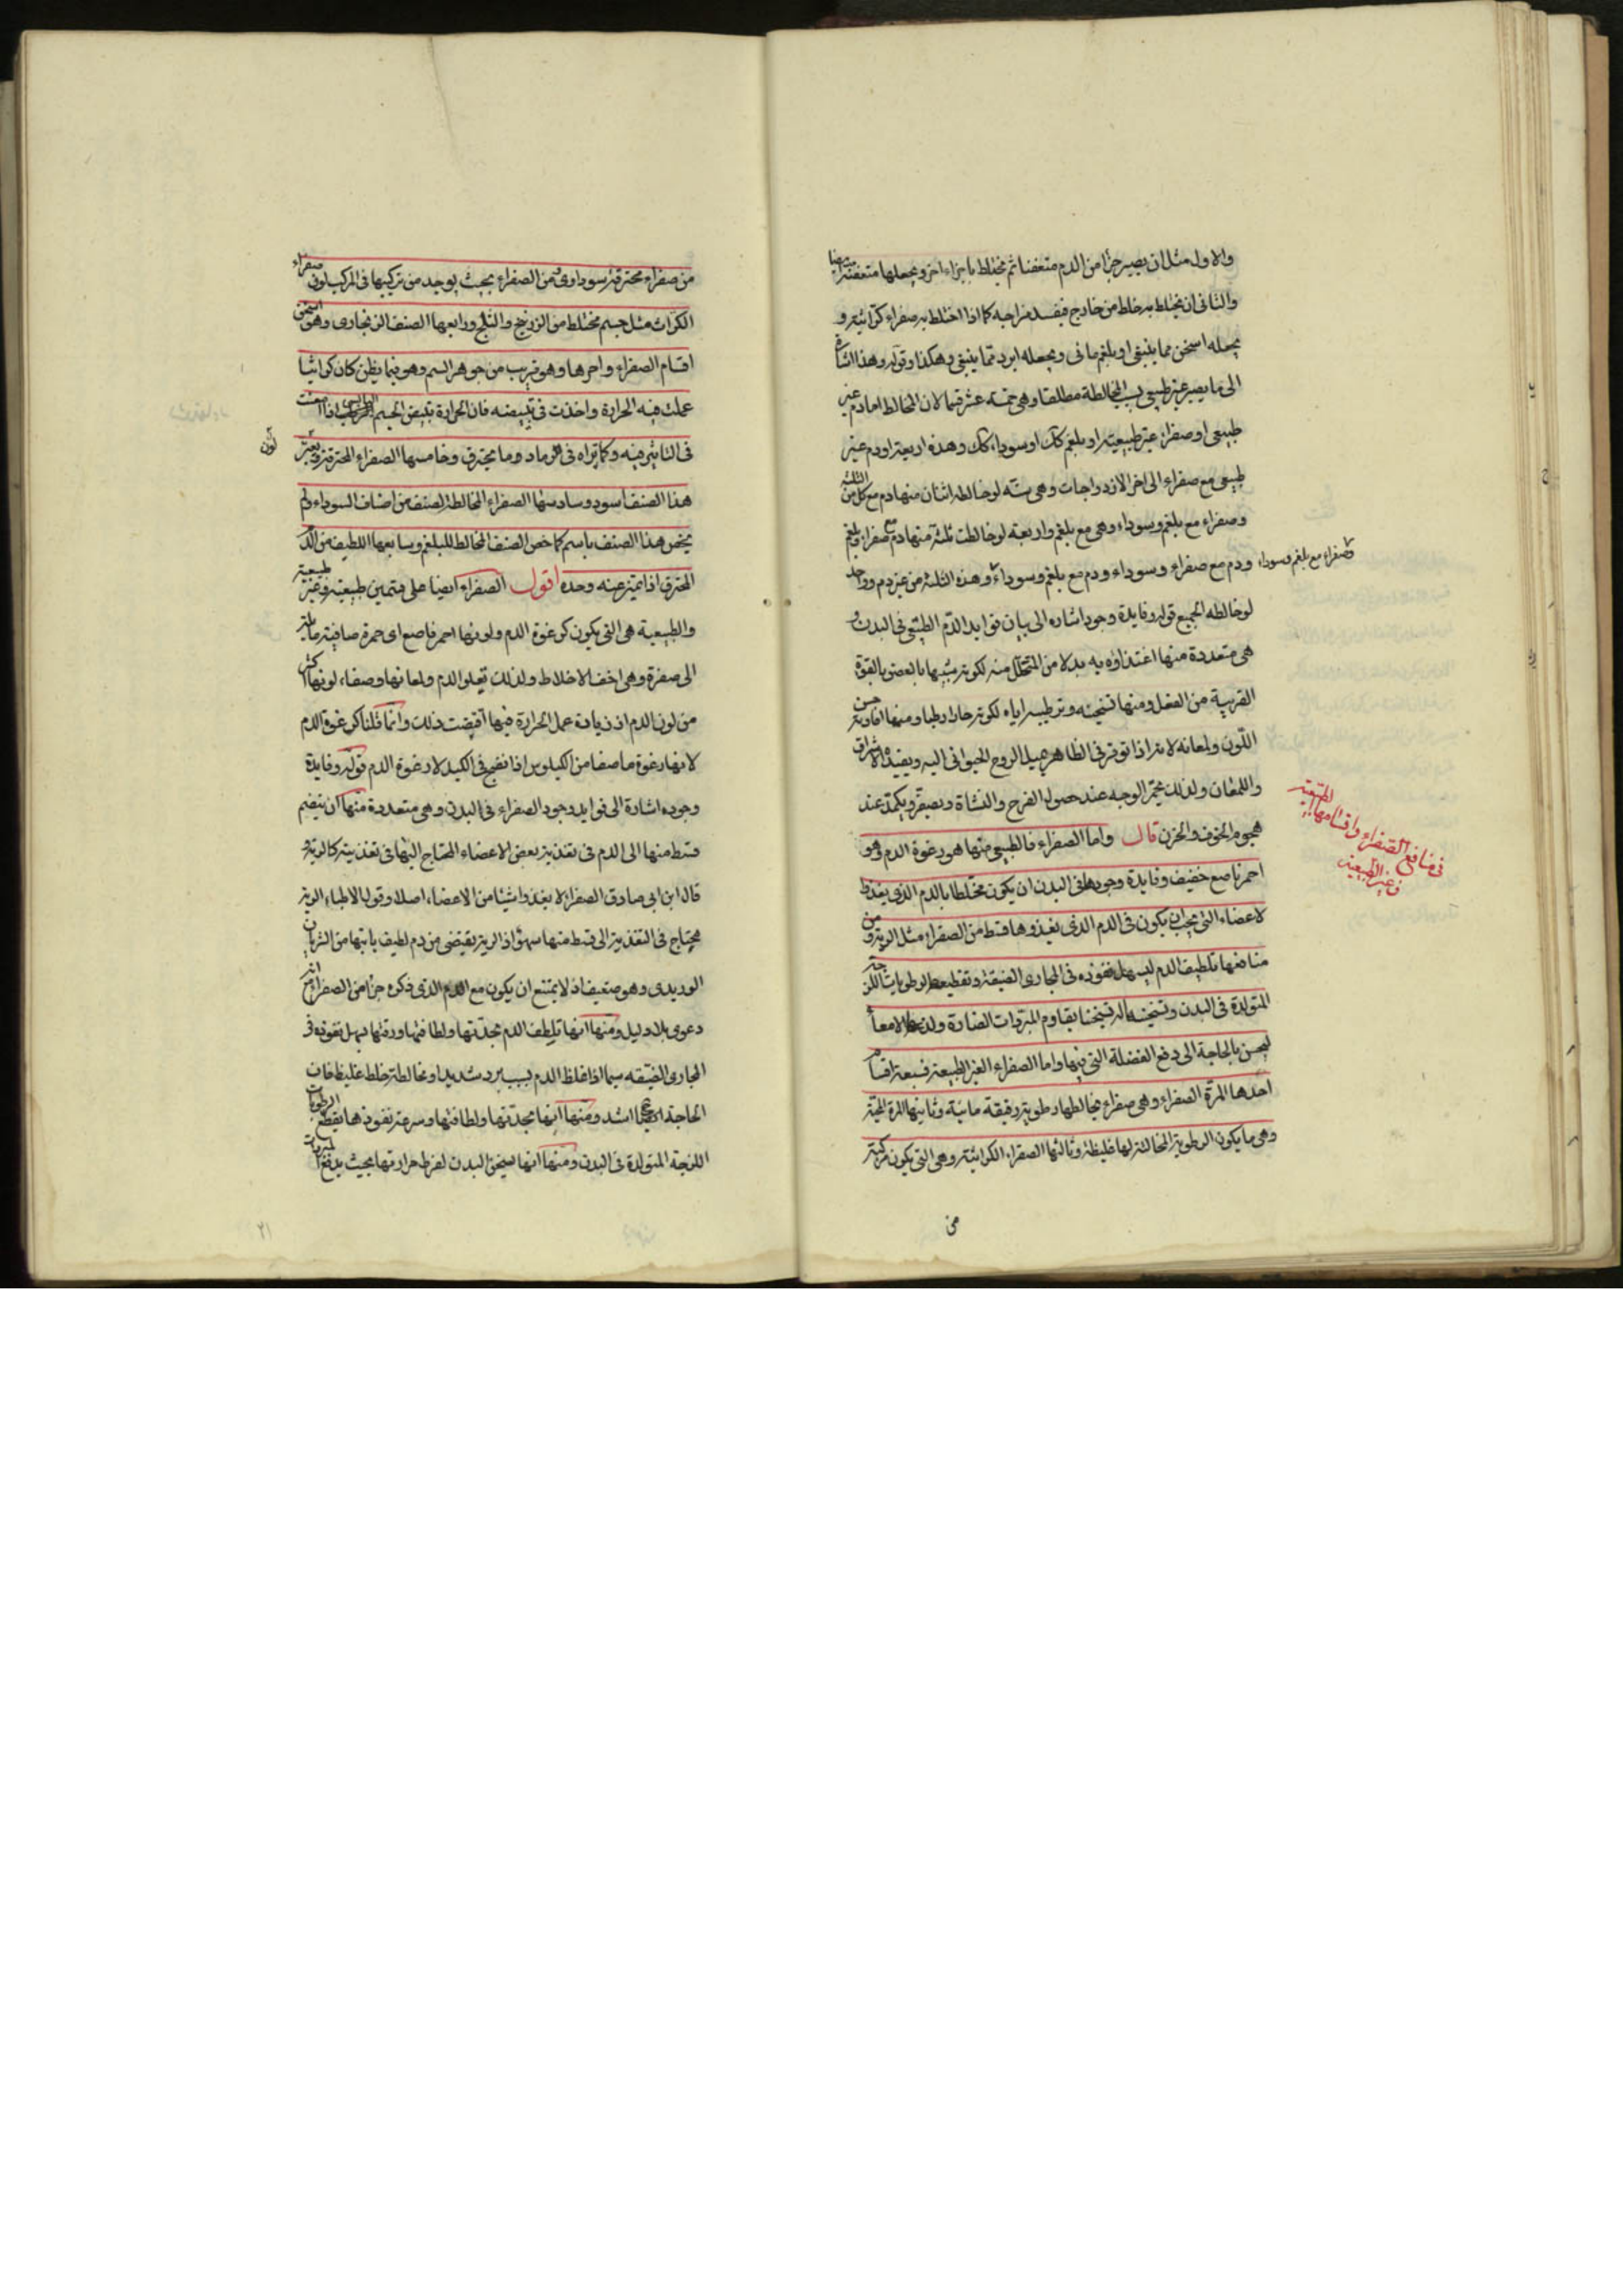 والاول مثل ان يصير جزأ من الدم متعفنا ثم يختلط باجزاء اخر ويجعلها متعفنة
والثانى ان يختلط به خلط من خارج فيفسد مزاجه كما اذا اختلط به صفراء كراثية و
يجعله اسخن مما ينبغى او بلغم مائى ويجعله ابرد مما ينبغى وهكذا وقوله وهذا اشارة
الى ما يصير غير طبيعى بسبب المخالطة مطلقا وهى خمسة عشر قسما لان المخالط اما دم غير
طبيعى او صفراء غير طبيعية او بلغم كك او سوداء كك وهذه اربعة او دم غير
طبيعى مع صفراء الى اخر الازدواجات وهى ستة لو خالطه اثنان منها دم مع كل من الثلثة
وصفراء مع بلغم وسوداء وهى مع بلغم واربعة لو خالطت ثلثة منها دم مع صفراء وبلغم
ودم مع صفراء وسوداء ودم مع بلغم وسوداء وهذه الثلثة من غير دم وواحد
وصفراء مع بلغم وسوداء
لو خالطه الجميع قوله وفايدة وجوده اشاره الى بيان فوايد الدم الطبيعى فى البدن و
هى متعددة منها اغتذاؤه به بدلا من المتحلل منه لكونه شبيها بالعضو بالقوة
القريبة من الفعل ومنها تسخينه وترطيبه اياه لكونه حارا رطبا ومنها افادته حسن
اللون ولمعانه لانه اذا توفر فى الظاهر يميل الروح الحيوانى اليه ويفيده الاشراق
واللمعان ولذلك يحمر الوجه عند حصول الفرح والنشاة ويصفر ويكمد عند
هجوم الخوف والحزن قال واما الصفراء فالطبيعى منها هو رغوة الدم وهو
فى منافع الصفراء واقسامها الطبيعية
و غير الطبيعية
احمر ناصع خفيف وفايدة وجودها فى البدن ان يكون مختلطا بالدم الذى يغذوا
لاعضاء التى يجب ان يكون فى الدم الذى يغذوها قسط من الصفراء مثل الرية ومن
منافعها تلطيف الدم ليسهل نفوذه فى المجارى الضيقة وتقطيعها لرطوبات اللزجة
المتولدة فى البدن وتسخينه اياه تسخينا يقاوم المبردات الضارة ولذعها الامعا
ليحس بالحاجة الى دفع الفضلة التى فيها واما الصفراء الغير الطبيعية فسبعة اقسام
احدها المرة الصفراء وهى صفراء يخالطها رطوبة رقيقة مائية وثانيها المرة المحية
وهى ما يكون الرطوبة المخالطة لها غليظة وثالثها الصفراء الكراثية وهى التى يكون مركبة
من
من صفراء محترقة سوداوى ومن الصفراء بحيث يوجد من تركيبها فى المركب لون صفراء
الكراث مثل جسم مختلط من الزرنيخ والنلج ورابعها الصنف الزنجارى وهو اسخن
اقسام الصفراء واحرها وهو قريب من جوهر السم وهو فيما يظن كان كراثيا
عملت فيه الحرارة واخذت فى تبييضه فان الحرارة تبيض الجسم اليابس اذا امعنت
فى التاثير فيه وكما تراه فى الرماد وما يحترق وخامسها الصفراء المحترقة ويعتبر
لون
هذا الصنف اسود وسادسها الصفراء المخالطة لصنف من اصناف السوداء ولم
يخص هذا الصنف باسم كما خص الصنف المخالط للبلغم وسابعها اللطيف من الدم
المحترق اذا تميز عنه وحده اقول الصفراء ايضا على قسمين طبيعية وغير طبيعية
والطبيعية هى التى يكون كرغوة الدم ولونها احمر ناصع اى حمرة صافية مايلة
الى صفرة وهى اخف الاخلاط ولذلك تعلو الدم ولمعانها وصفاء لونها اكثر
من لون الدم اذ زيادة عمل الحرارة فيها اقتضت ذلك وانما قلنا كرغوة الدم
لانها رغوة ما صفا من الكيلوس اذا نضج فى الكبد لا رغوة الدم قوله وفايدة
وجوده اشارة الى فوايد وجود الصفراء فى البدن وهى متعددة منها ان ينضم
قسط منها الى الدم فى تغذية بعض الاعضاء المحتاج اليها فى تغذيته كالرية و
قال ابن ابى صادق الصفراء لا يغذوا شيئا من الاعضاء اصلا وقول الاطباء الرية
يحتاج فى التغذية الى قسط منها سهو اذ الرية يقتضى من دم لطيف ياتيها من الشريان
الوريدى وهو ضعيف اذ لا يمتنع ان يكون مع الدم الذى ذكره جزأ من الصفراء
دعوى بلا دليل ومنها انها تلطف الدم بحدتها ولطافتها ورقتها يسهل نفوذه فى
المجارى الضيقه سيما اذا غلظ الدم بسبب برد شديد او مخالطة خلط غليظ فان
الحاجة اليها اشد ومنها انها بحدتها ولطافتها وسرعة نفوذها يقطع الرطوبات
اللزجة المتولدة فى البدن ومنها انها تسخن البدن لفرط حرارتها بحيث يدفع المبردات
٢١